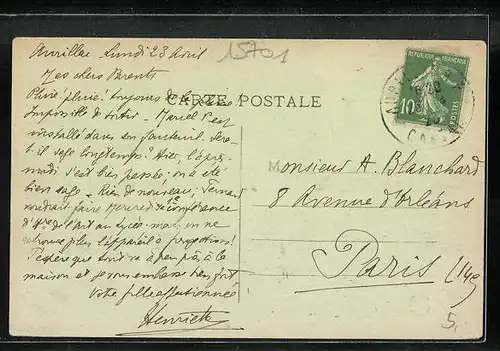 15701
Aurillac Lundi 23 Avril
Mes chers Parents
Pluie! pluie! toujours de la pluie
CARTE POSTALE
Impossible de sortir. Marcel s'est
installé dans un fauteuil. Sera-
t-il sage longtemps? Hier, l'après-
midi s'est très passé, on a été
bien sage. Rien de nouveau; Fernand
voudrait faire Mercredi sa 1e conférence
d'Hre de l'Art au Lycée mais on ne
retrouve plus l'appareil à projections!
J'espère que tout va à peu près à la
maison et je vous embrasse bien fort
Votre fille affectionnée
Henriette
REPUBLIQUE FRANÇAISE
10c
POSTES
AURILLAC
CANTAL
Monsieur A. Blanchard
8 Avenue d'Orléans
Paris (14e)
5